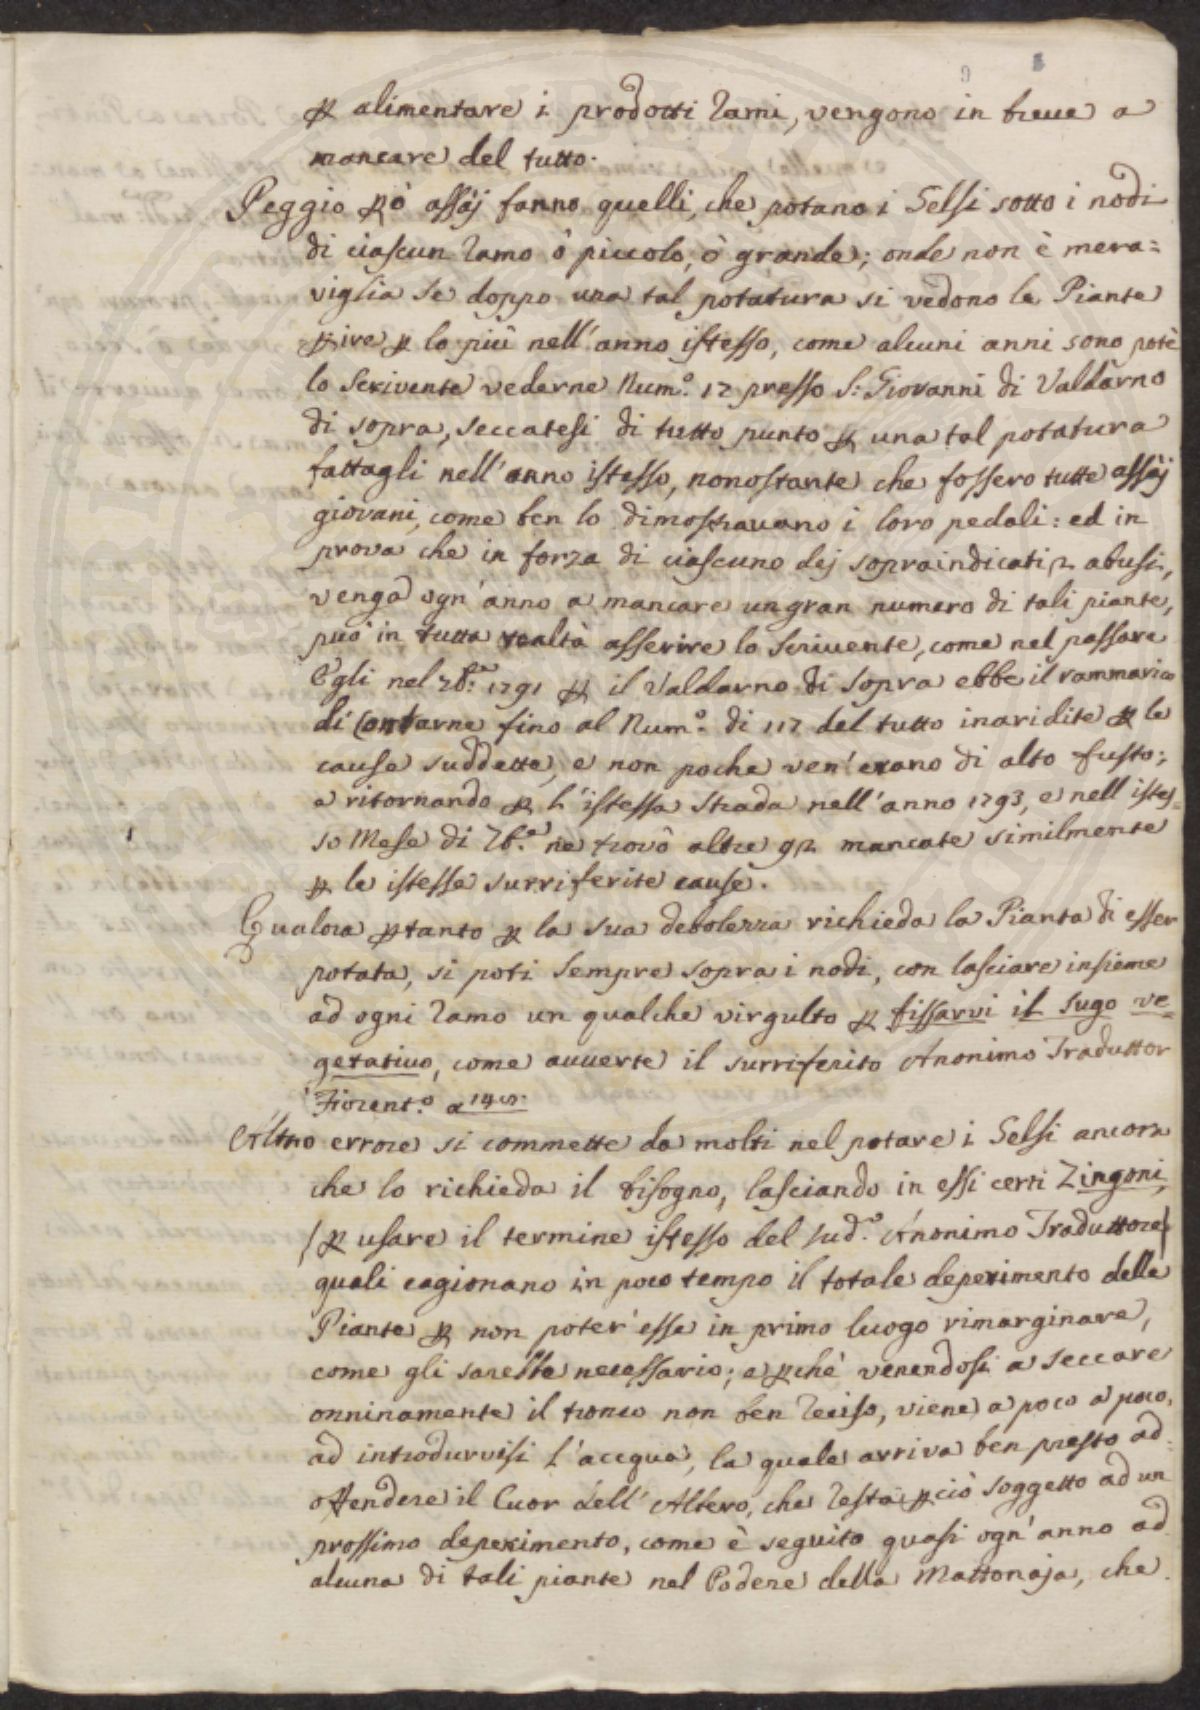 ꝑ alimentare i prodotti rami, vengono in breue a
mancare del tutto.
Peggio ꝑò assaj fanno quelli, che potano i Gelsi sotto i nodi
di ciascun ramo ô piccolo, ô grande; onde non è mera=
viglia se doppo una tal potatura si vedono le Piante
ꝑire ꝑ lo più nell'anno istesso, come alcuni anni sono potè
lo Scrivente vederne Num.º 17 presso S: Giovanni di Valdarno
di sopra, seccatesi di tutto punto ꝑ una tal potatura
fattagli nell'anno istesso, nonostante che fossero tutte assaj
giovani, come ben lo dimostrauano i loro pedali: ed in
prova che in forza di ciascuno dej sopraindicati 2 abusi,
venga ogn'anno a mancare un gran numero di tali piante,
può in tutta realtà asserire lo Scriuente, come nel passare
Egli nel 7b.e 1791 ꝑ il Valdarno di sopra ebbe il rammarico
di Contarne fino al Num.º di 117 del tutto inaridite ꝑ le
cause suddette, e non poche ven'erano di alto fusto;
e ritornando ꝑ l'istessa strada nell'anno 1793, e nell'istes=
so Mese di 7b.e ne trovò altre 92 mancate similmente
ꝑ le istesse surriferite cause.
Qualora ꝑtanto ꝑ la sua debolezza richieda la Pianta di esser
potata, si poti sempre sopra i nodi, con lasciare insieme
ad ogni ramo un qualche virgulto ꝑ fissarvi il sugo ve=
getativo, come auuerte il surriferito Anonimo Traduttor
Fiorent.º a 145.
Altro errore si commette da molti nel potare i Gelsi ancora
che lo richieda il bisogno, lasciando in essi certi Zingoni,
/ ꝑ usare il termine istesso del Sud.º Anonimo Traduttore/
quali cagionano in poco tempo il totale deperimento delle
Piante ꝑ non poter'esse in primo luogo rimarginare,
come gli sarebbe necessario; e ꝑchè venendosi a seccare
onninamente il tronco non ben reciso, viene a poco a poco,
ad introdurvisi l'acqua, la quale arriva ben presto ad
offendere il Cuor dell'Albero, che resta ꝑciò soggetto ad un
prossimo deperimento, come è seguito quasi ogn'anno ad
alcuna di tali piante nel Podere della Mattonaja, che